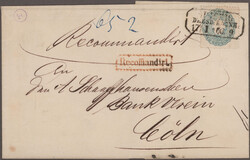 652
Recommandirt
Recommandirt.
An
den A. Schaaffhausen'schen
Bank Verein
Cöln